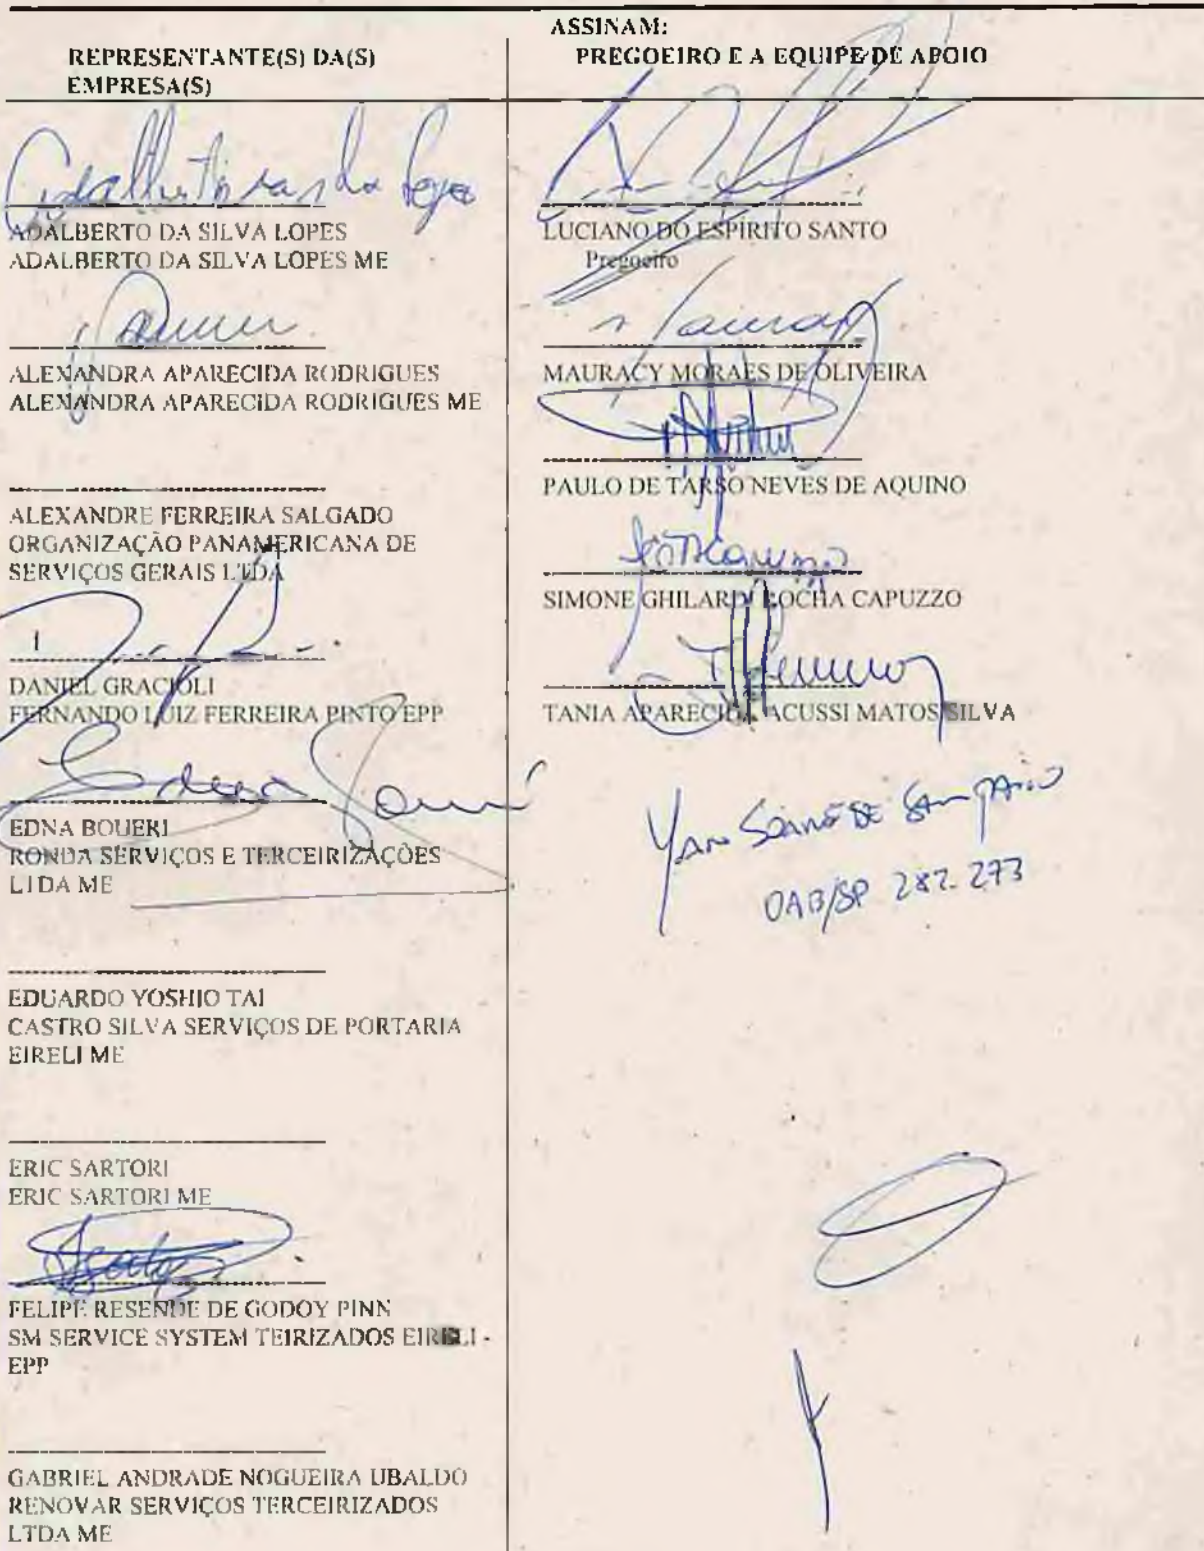 ASSINAM:
REPRESENTANTE(S) DA(S)
EMPRESA(S)
ADALBERTO DA SILVA LOPES
ADALBERTO DA SILVA LOPES ME
ALEXANDRA APARECIDA RODRIGUES
ALEXANDRA APARECIDA RODRIGUES ME
ALEXANDRE FERREIRA SALGADO
ORGANIZAÇÃO PANAMERICANA DE
SERVIÇOS GERAIS LTDA
DANIEL GRACIOLI
FERNANDO LUIZ FERREIRA PINTO EPP
EDNA BOUERI
RONDA SERVIÇOS E TERCEIRIZAÇÕES
LTDA ME
EDUARDO YOSHIO TAI
CASTRO SILVA SERVIÇOS DE PORTARIA
EIRELI ME
ERIC SARTORI
ERIC SARTORI ME
FELIPE RESENDE DE GODOY PINN
SM SERVICE SYSTEM TEIRIZADOS EIRELI -
EPP
GABRIEL ANDRADE NOGUEIRA UBALDO
RENOVAR SERVIÇOS TERCEIRIZADOS
LTDA ME
PREGOEIRO E A EQUIPE DE APOIO
LUCIANO DO ESPÍRITO SANTO
Pregoeiro
MAURACY MORAES DE OLIVEIRA
PAULO DE TARSO NEVES DE AQUINO
SIMONE GHILARDI ROCHA CAPUZZO
TANIA APARECIDA ACUSSI MATOS SILVA
YAN SOARES DE SAMPAIO
OAB/SP 282.273